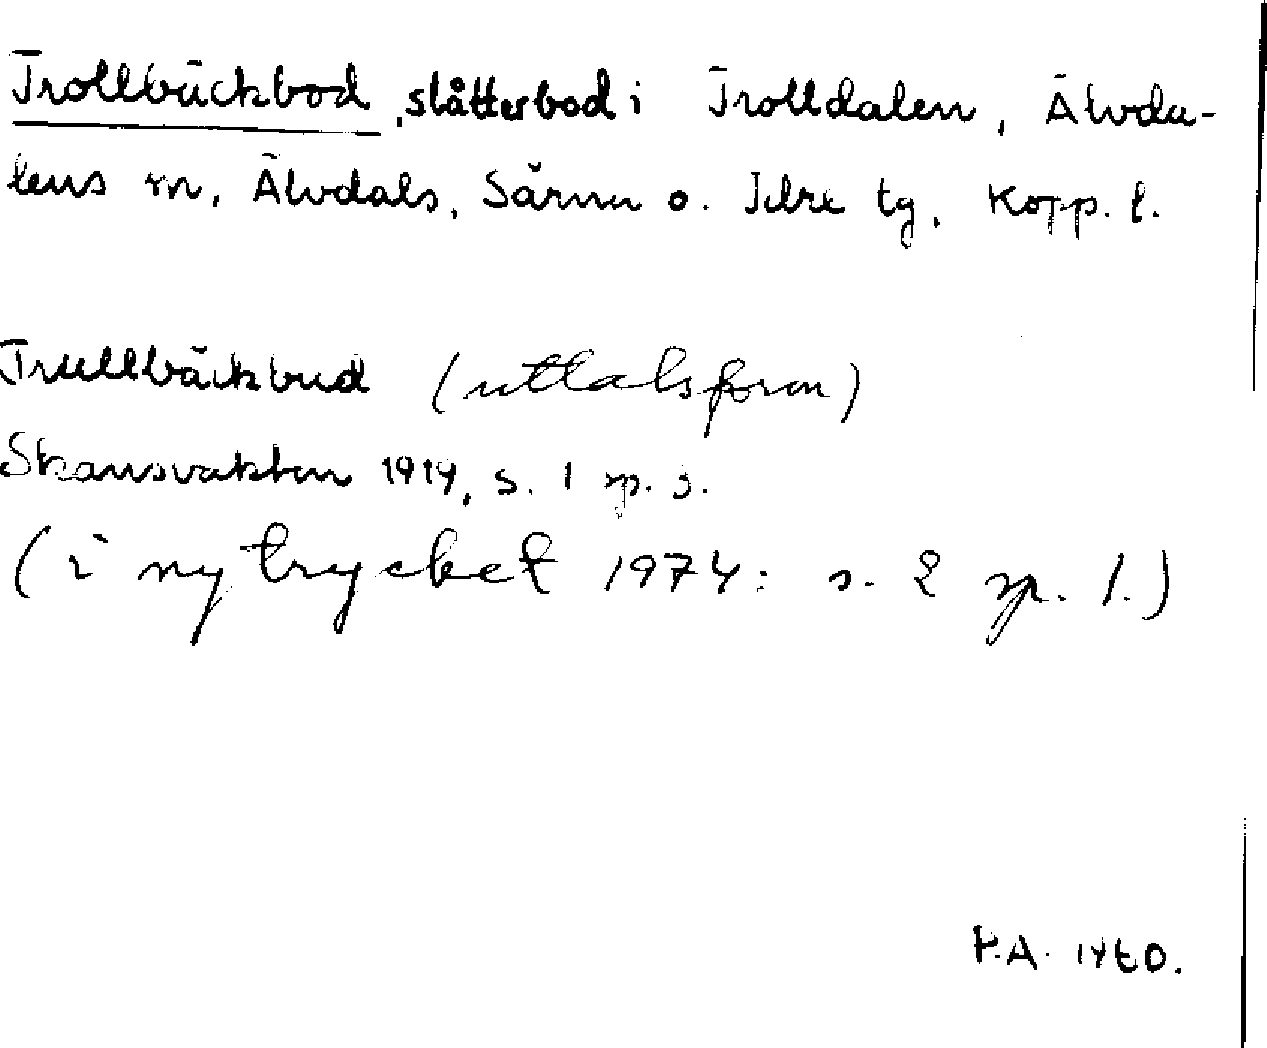 Trollbäckbod, slåtterbod i Trolldalen, Älvda-
lens m, Älvdals, Särna o. Idre tg, Kopp. l.
Trullbäckbud (uttalsform)
Skansvakten 1919, s. 1 sp. 3.
(i nytrycket 1974: s. 2 sp. 1.)
P.A. 1960.